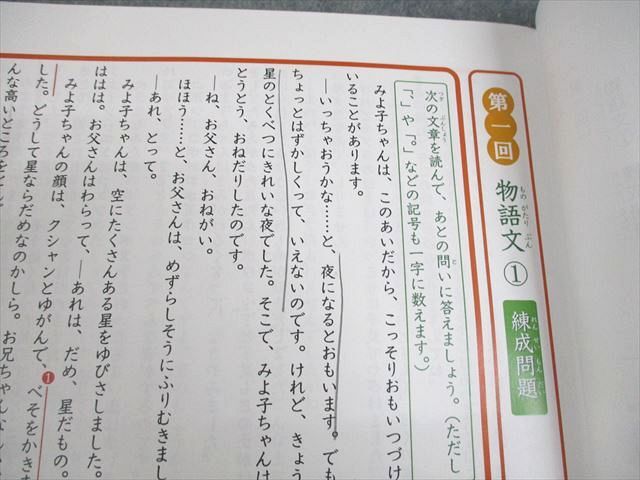 第一回 物語文① 練成問題
次の文章を読んで、あとの問いに答えましょう。(ただし
「、」や「。」などの記号も一字に数えます。)
みよ子ちゃんは、このあいだから、こっそりおもいつづけ
いることがあります。
―いっちゃおうかな……と、夜になるとおもいます。でも
ちょっとはずかしくって、いえないのです。けれど、きょう
星のとくべつにきれいな夜でした。そこで、みよ子ちゃんは
とうとう、おねだりしたのです。
―ね、お父さん、おねがい。
ほほう……と、お父さんは、めずらしそうにふりむきまし
―あれ、とって。
みよ子ちゃんは、空にたくさんある星をゆびさしました。
ははは。お父さんはわらって、―あれは、だめ、星だもの。
みよ子ちゃんの顔は、クシャンとゆがんで、❶べそをかきま
した。どうして星ならだめなのかしら。お兄ちゃんな
んな高いところを